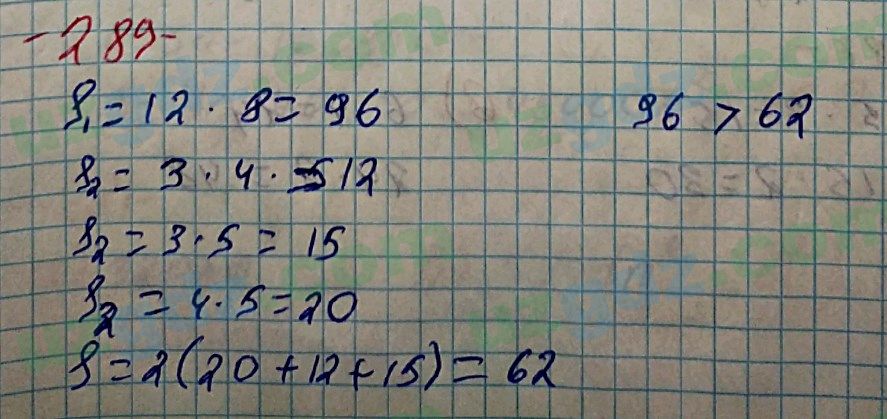 -289-
S₁ = 12 · 8 = 96 96 > 62
S₂ = 3 · 4 · = 12
S₂ = 3 · 5 = 15
S₂ = 4 · 5 = 20
S = 2(20 + 12 + 15) = 62